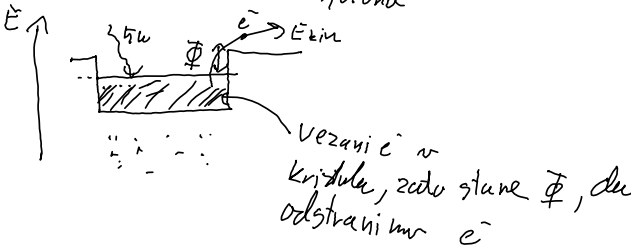 E
ħω
Φ
e⁻
Ekin
vezani e⁻ v
kristalu, zato stane Φ, da
odstranimo e⁻